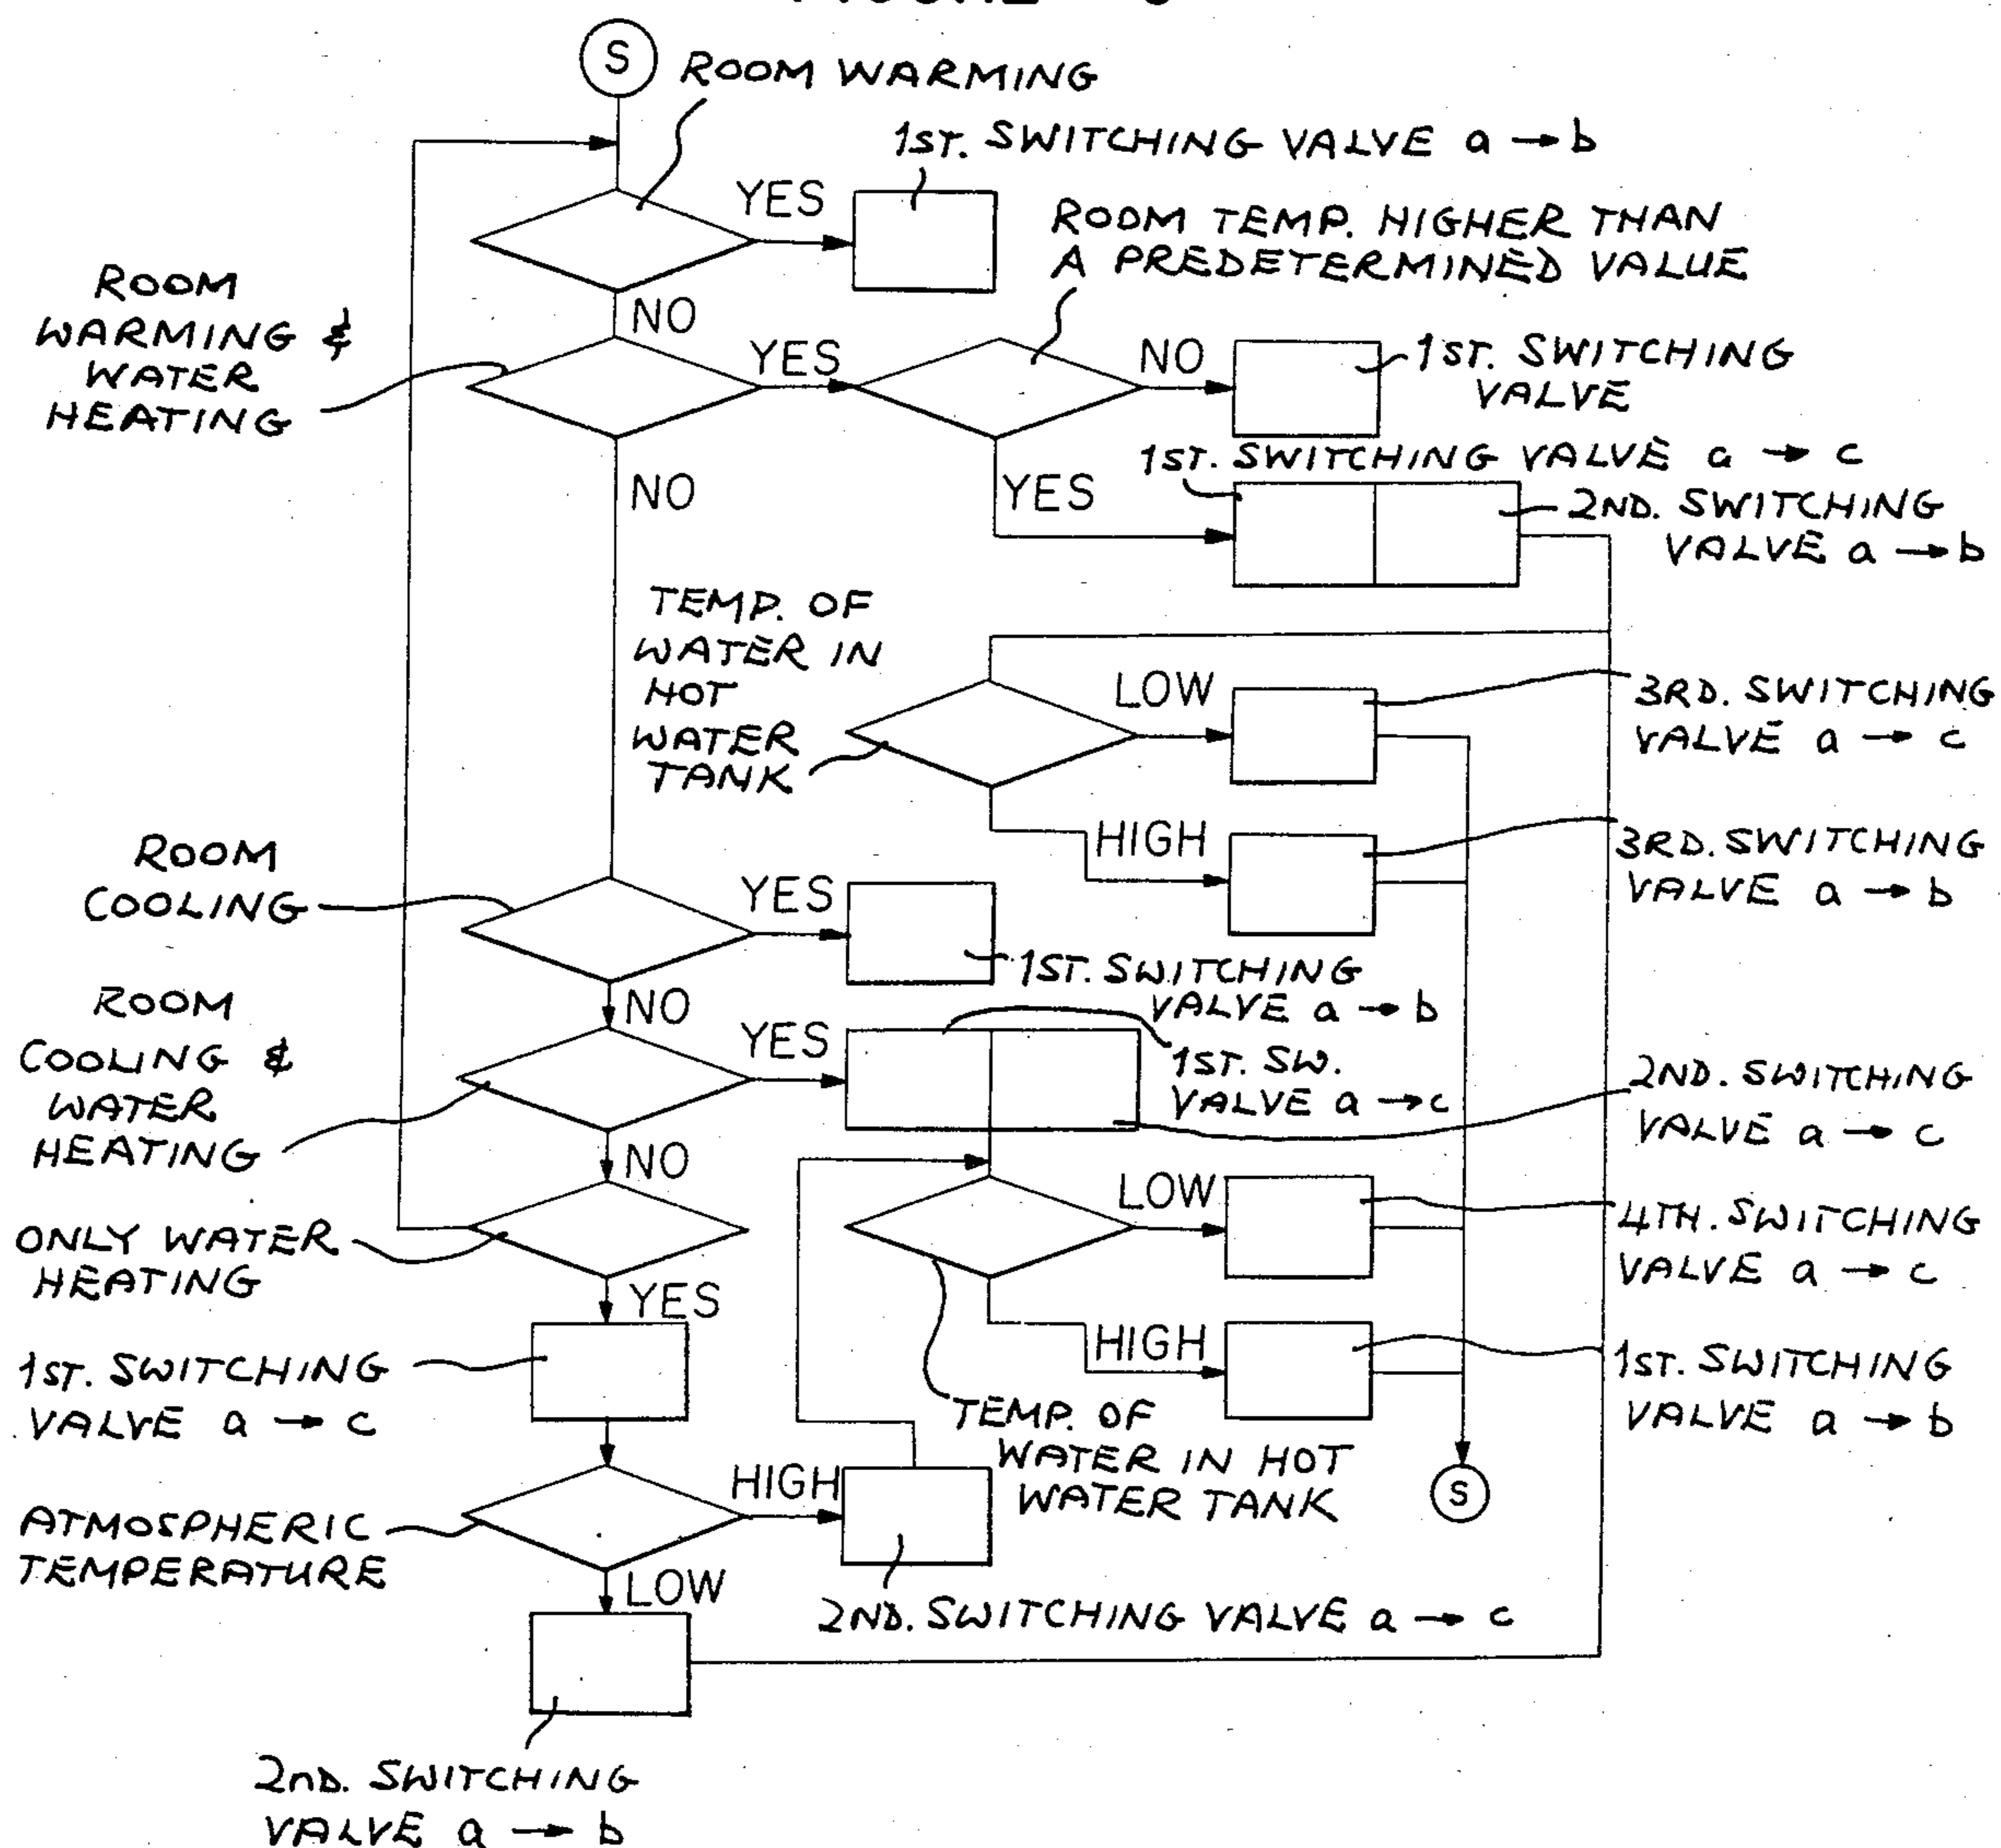 S
ROOM WARMING
1ST. SWITCHING VALVE a → b
YES
ROOM TEMP. HIGHER THAN
A PREDETERMINED VALUE
NO
ROOM
WARMING &
WATER
HEATING
YES
NO
1ST. SWITCHING
VALVE
NO
YES
1ST. SWITCHING VALVE a → c
2ND. SWITCHING
VALVE a → b
TEMP. OF
WATER IN
HOT
WATER
TANK
LOW
3RD. SWITCHING
VALVE a → c
HIGH
3RD. SWITCHING
VALVE a → b
ROOM
COOLING
YES
1ST. SWITCHING
VALVE a → b
NO
ROOM
COOLING &
WATER
HEATING
YES
1ST. SW.
VALVE a → c
2ND. SWITCHING
VALVE a → c
NO
LOW
4TH. SWITCHING
VALVE a → c
ONLY WATER
HEATING
YES
HIGH
1ST. SWITCHING
VALVE a → b
1ST. SWITCHING
VALVE a → c
TEMP. OF
WATER IN HOT
WATER TANK
S
HIGH
ATMOSPHERIC
TEMPERATURE
LOW
2ND. SWITCHING VALVE a → c
2ND. SWITCHING
VALVE a → b